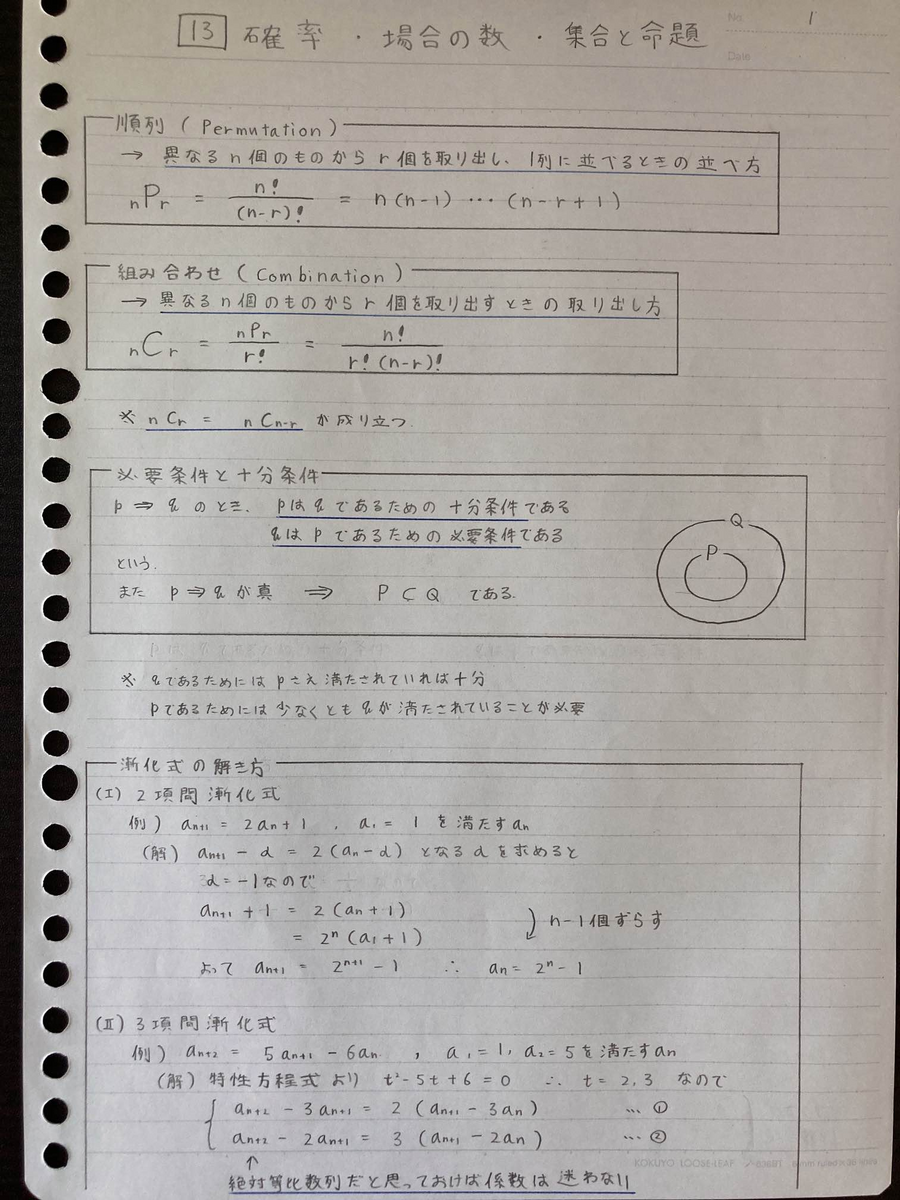 13 確率・場合の数・集合と命題
No. 1
Date
順列 ( Permutation )
→ 異なるn個のものからr個を取り出し、1列に並べるときの並べ方
nPr = n! / (n-r)! = n(n-1) ⋯ (n-r+1)
組み合わせ ( Combination )
→ 異なるn個のものからr個を取り出すときの取り出し方
nCr = nPr / r! = n! / r!(n-r)!
※ nCr = nCn-r が成り立つ.
必要条件と十分条件
p ⇒ q のとき. pはqであるための十分条件である
qはpであるための必要条件である
という.
また p ⇒ q が真 ⇒ P ⊂ Q である.
Q
P
※ qであるためにはpさえ満たされていれば十分
pであるためには少なくともqが満たされていることが必要
漸化式の解き方
(I) 2項間漸化式
例) an+1 = 2an + 1 , a1 = 1 を満たすan
(解) an+1 - α = 2 (an - α) となるαを求めると
α = -1なので
an+1 + 1 = 2 (an + 1)
= 2ⁿ (a1 + 1)
n-1個ずらす
よって an+1 = 2ⁿ⁺¹ - 1 ∴ an = 2ⁿ - 1
(II) 3項間漸化式
例) an+2 = 5an+1 - 6an , a1 = 1, a2 = 5を満たすan
(解) 特性方程式より t² - 5t + 6 = 0 ∴ t = 2, 3 なので
an+2 - 3an+1 = 2 (an+1 - 3an) … ①
an+2 - 2an+1 = 3 (an+1 - 2an) … ②
↑
絶対等比数列だと思っておけば係数は迷わない!
KOKUYO LOOSE-LEAF